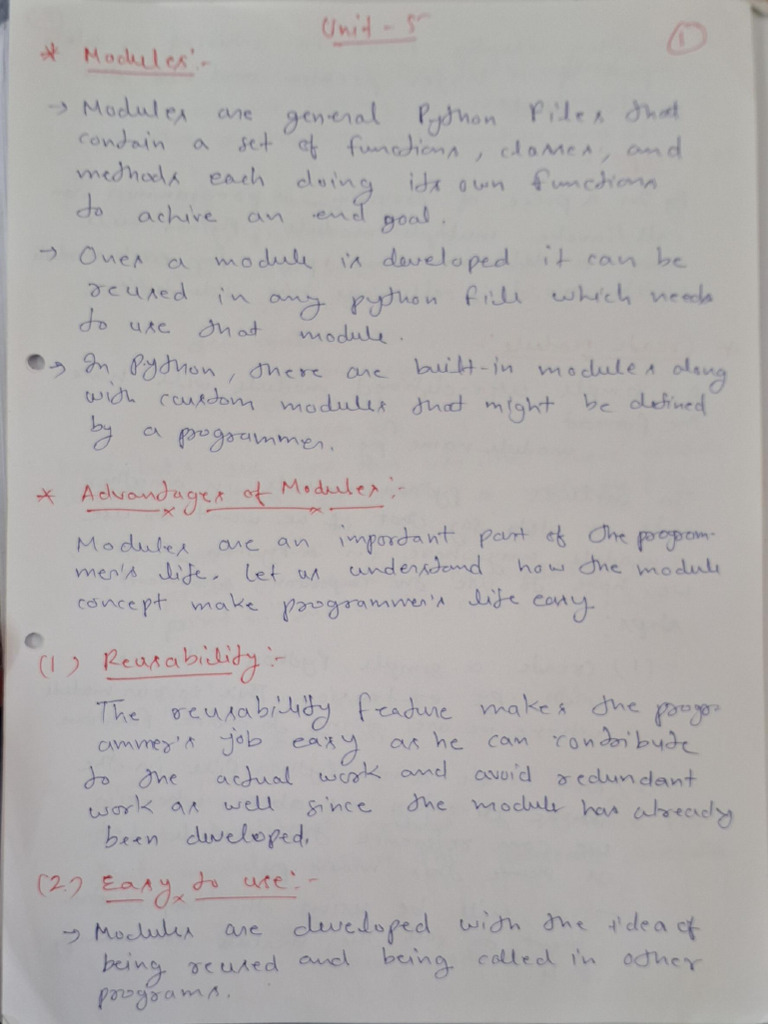 Unit - 5
1
* Modules :-
→ Modules are general Python Files that
contain a set of functions, classes, and
methods each doing its own functions
to achive an end goal.
→ Ones a module is developed it can be
reused in any python file which needs
to use that module.
→ In Python, there are built-in modules along
with custom modules that might be defined
by a programmer.
* Advantages of Modules :-
Modules are an important part of the program-
mer's life. Let us understand how the module
concept make programmer's life easy.
(1) Reusability :-
The reusability feature makes the progr-
ammer's job easy as he can contribute
to the actual work and avoid redundant
work as well since the module has already
been developed.
(2) Easy to use :-
→ Modules are developed with the idea of
being reused and being called in other
programs.